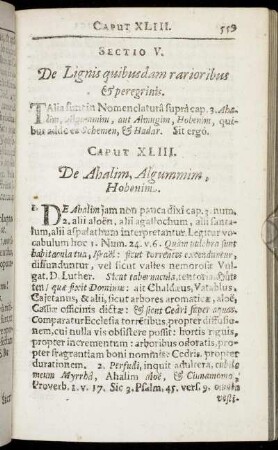 CAPUT XLIII. 559
SECTIO V.
De Lignis quibusdam rarioribus
& peregrinis.
TAlia sunt in Nomenclaturâ suprà cap. 3. Aha-
lim, Algummim, aut Almugim, Hobenim, qui-
bus addes Schemen, & Hadar. Sit ergò.
CAPUT XLIII.
De Ahalim, Algummim,
Hobenim.
1. DE Ahalim jam non pauca dixi cap. 3. num.
2. alii aloën, alii agallochum, alii santa-
lum, alii aspalathum interpretantur. Legitur vo-
cabulum hoc 1. Num. 24. v. 6. Quàm pulchra sunt
habitacula tua, Israël: sicut torrentes extenduntur,
diffunduntur, vel sicut valles nemorosæ Vul-
gat. D. Luther. Sicut tabernacula, tentoria,
quæ fixit Dominus: ait Chaldæus, Vatablus,
Cajetanus, & alii, sicut arbores aromaticæ, aloë,
Cassiæ officinis dictæ: & sicut Cedri super aquas.
Comparatur Ecclesia torrentibus, propter diffusio-
nem, cui nulla vis obsistere possit: hortis riguis,
propter incrementum: arboribus odoratis, prop-
ter fragrantiam boni nominis: Cedris, propter
durationem. 2. Perfudi, inquit adultera, cubile
meum Myrrhâ, Ahalim aloë, & Cinnamomo,
Proverb. v. 17. Sic 3. Psalm. 45. vers. 9.
vesti-